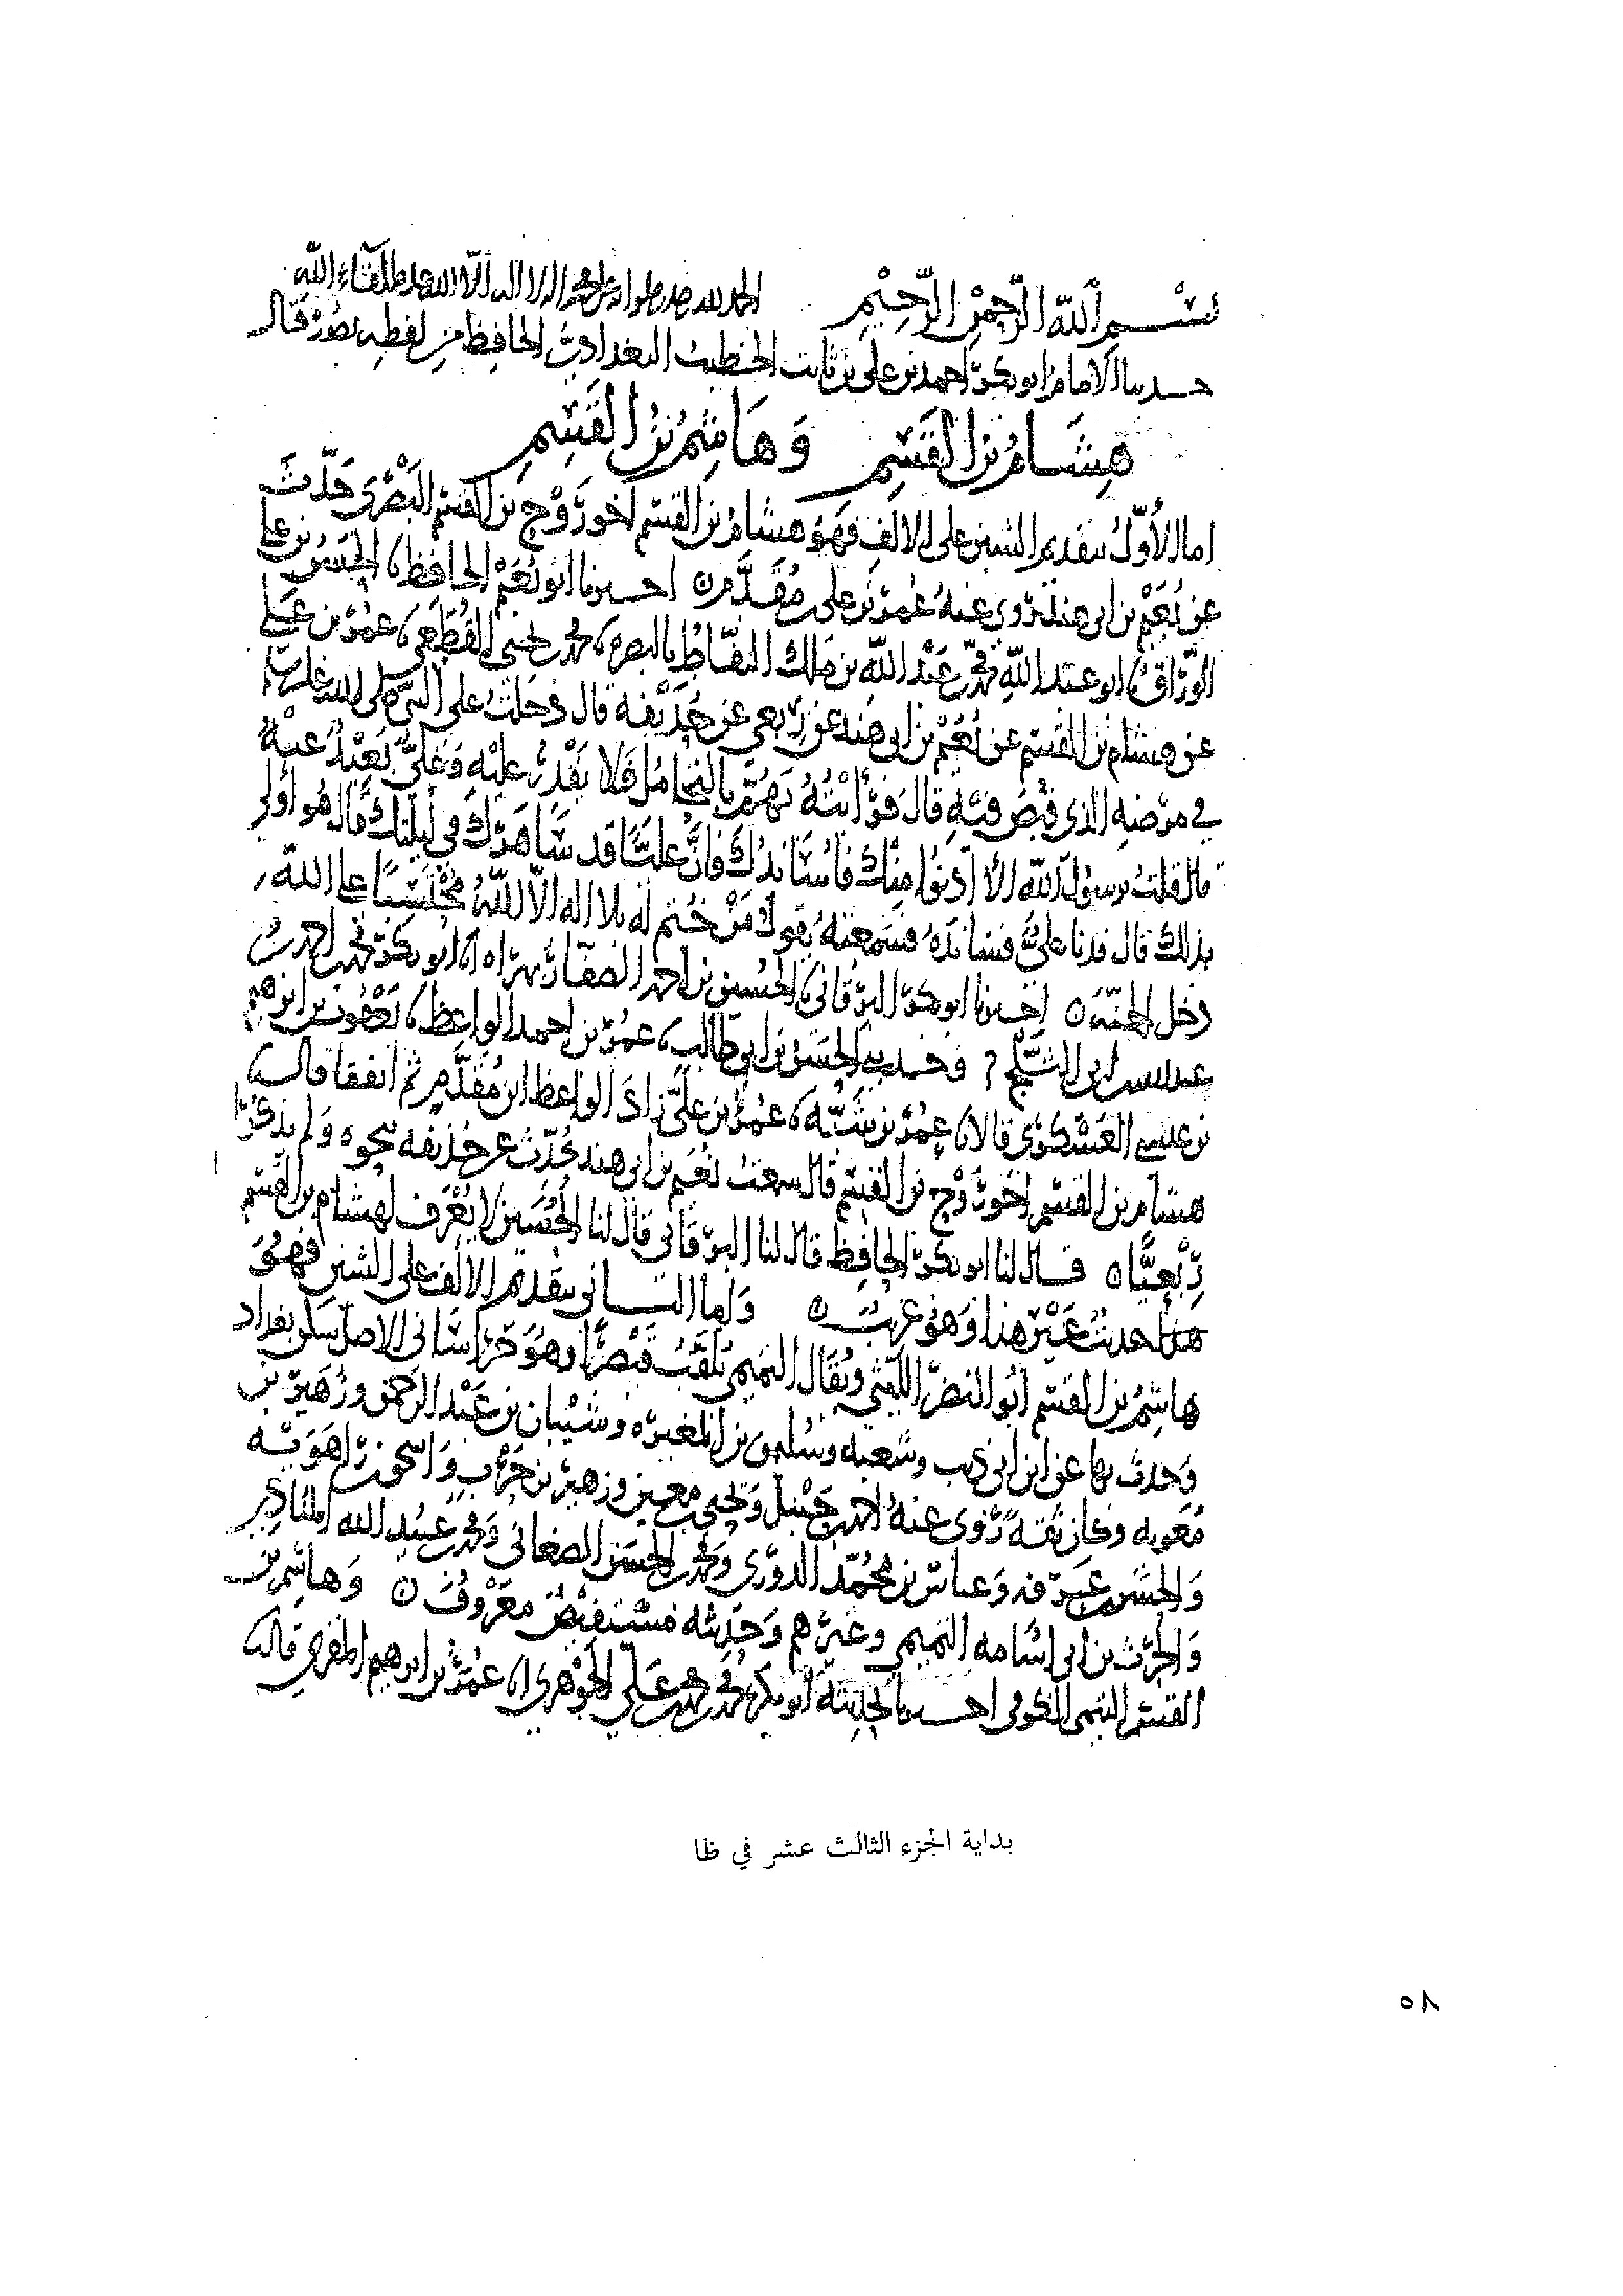 بسم الله الرحمن الرحيم الحمد لله لا اله الا الله عدة للقاء الله
حدثنا الامام ابو بكر احمد بن على بن ثابت الخطيب البغدادي الحافظ من لفظه بصور قال
هشام بن القسم وهاشم بن القسم
اما الأول بتقديم الشين على الالف فهو هشام بن القسم اخو روح بن القسم البصرى حدث
عن نعيم بن ابى هند روى عنه عمر بن على بن مقدم ٥ اخبرنا ابو نعيم الحافظ الحسن بن على
الوراق ابو عبد الله محمد بن عبد الله بن ملك النفاط بالبصره محمد بن يحيى القطعى عمر بن على
عن هشام بن القسم عن نعيم بن ابى هند عن ربعى عن حذيفة قال دخلت على النبى صلى الله عليه
في مرضه الذى قبض فيه قال فرأيته يهم بالتحامل فلا يقدر عليه وعلى بعيد عنه
قال قلت يرسول الله الا أدنوا منك فأساندك فان عليا قد ساهرك فى ليلتك قال هو أولى
بذلك قال فدنا على فسانده فسمعته يقول من ختم له بلا اله الا الله محتسبا على الله
دخل الجنة ٥ اخبرنا ابو بكر البرقانى الحسين بن احمد الصفار بهراه ابو بكر محمد بن احمد بن
عبد الله بن ابى الثلج وحدثنيه الحسن بن ابى طالب عمر بن احمد الواعظ يعقوب بن ابرهيم
بن عيسى العسكرى قالا عمر بن شبه عمر بن على زاد الواعظ ابن مقدم ثم اتفقا قال
هشام بن القسم اخو روح بن القسم قال سمعت نعيم بن ابى هند يحدث عن حذيفه نحوه ولم يذكر
ربعيا ٥ قال لنا ابو بكر الحافظ قال لنا البرقانى قال لنا الحسين لا يعرف لهشام بن القسم
حديث غير هذا وهو غريب ٥ واما الثانى بتقديم الالف على الشين فهو
هاشم بن القسم أبو النضر الليثى ويقال التميمى يلقب قيصرا وهو خراسانى الاصل سكن بغداد
وحدث بها عن ابن ابى ذيب وشعبه وسليمن بن المغيره وشيبان بن عبد الرحمن وزهير بن
معويه وكان ثقة روى عنه احمد بن حنبل ويحيى بن معين وزهير بن حرب واسحق بن راهويه
والحسن بن عرفه وعباس بن محمد الدورى ومحمد بن الحسن الصغانى ومحمد بن عبيد الله المنادى
والحرث بن ابى اسامه التميمى وغيرهم وحديثه مستفيض معروف ٥ وهاشم بن
القسم التيمى الكوفى اخبرنا بحديثه ابو بكر محمد بن محمد بن على الجوهرى عمر بن ابرهيم المقرى قال
بداية الجزء الثالث عشر في ظا
٥٨